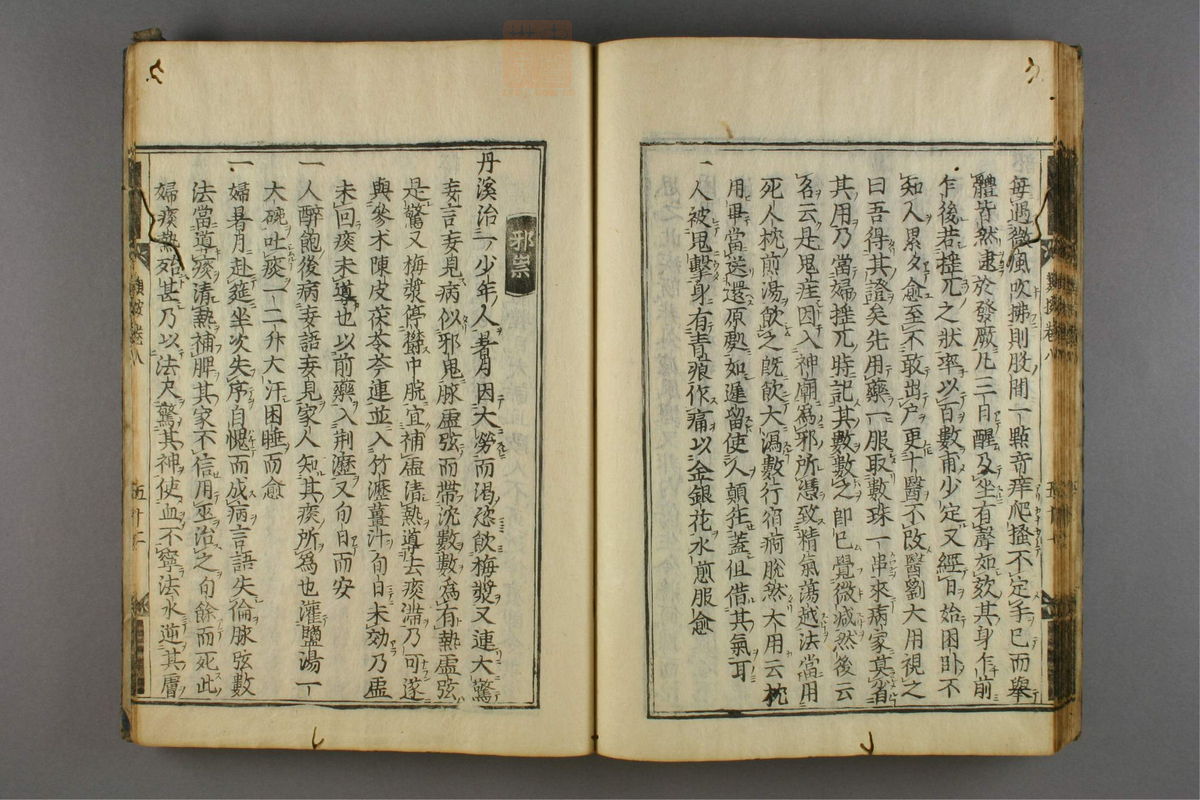 每遇微風吹拂則股間一點奇痒爬搔不定手已而舉
體皆然逮於發厥凡三日醒及坐有聲如欬其身乍前
乍後若搖兀之狀率以百數甫少定又經日始困卧不
知人累夕愈至不敢出户更十醫不改醫劉大用視之
曰吾得其證矣先用藥一服取數珠一串來病家莫省
其用乃當婦搖兀時記其數數之即已覺微減然後云
名云是鬼疰因入神廟爲邪所憑致精氣蕩越法當用
死人枕煎湯飲之既飲大瀉數行宿痾脱然大用云枕
用畢當送還原處如遲留使人顛狂蓋但借其氣耳
一人被鬼擊身有青痕作痛以金銀花水煎服愈
邪祟
丹溪治一少年人暑月因大勞而渴恣飲梅漿又連大驚
妄言妄見病似邪鬼脉虛弦而帶沈數數爲有熱虛弦
是驚又梅漿停鬱中脘宜補虛清熱導去痰滯乃可遂
與參木陳皮茯苓芩連並入竹瀝薑汁旬日未効乃虛
未回痰未導也以前藥入荆瀝又旬日而安
一人醉飽後病妄語妄見家人知其痰所爲也灌鹽湯一
大碗吐痰一二升大汗困睡而愈
一婦暑月赴筵坐次失序自愧而成病言語失倫脉弦數
法當導痰清熱補脾其家不信用巫治之旬餘而死此
婦痰熱殆甚乃以法尺驚其神使血不寧法水逆其膚
類按卷八